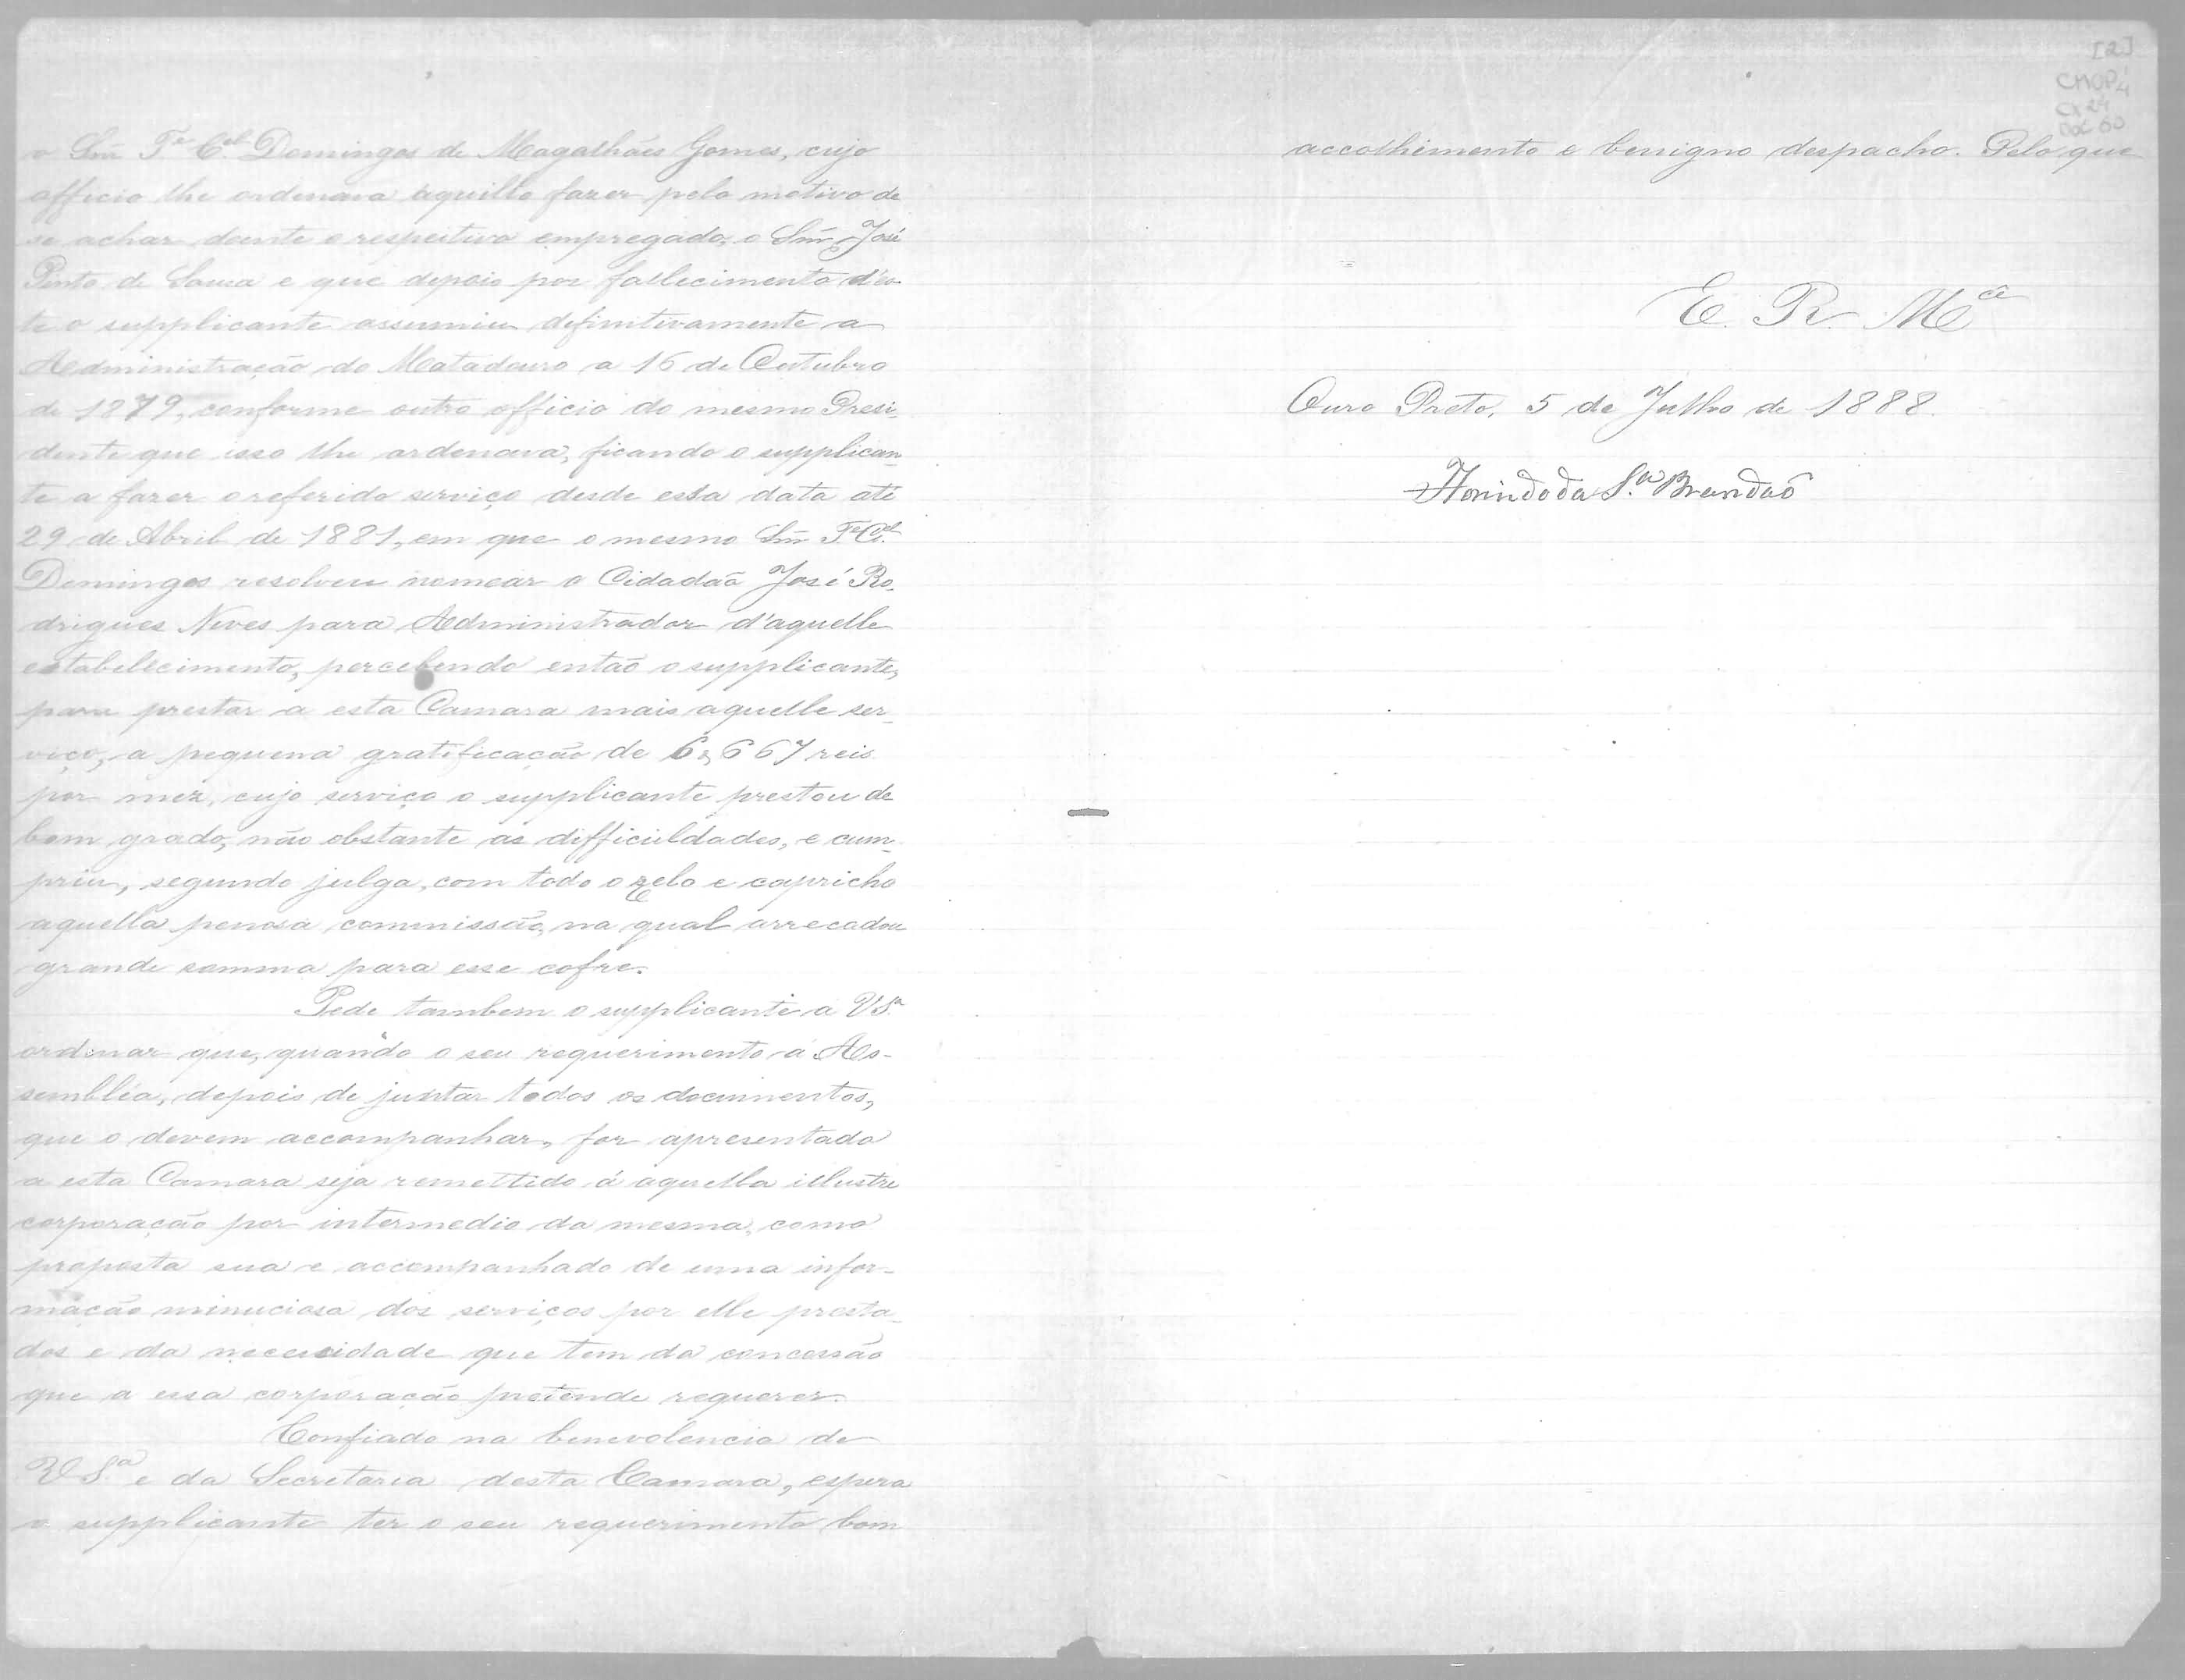 o Snr̃ Te Cel. Domingos de Magalhães Gomes, cujo
officio lhe ordenava aquillo fazer pelo motivo de
se achar doente o respectivo empregado, o Snr̃ José
Pinto de Souza e que depois por fallecimento d'es-
te o supplicante assumiu definitivamente a
Administração do Matadouro a 16 de Outubro
de 1879, conforme outro officio do mesmo Presi-
dente que isso lhe ordenava, ficando o supplican-
te a fazer o referido serviço desde essa data até
29 de Abril de 1881, em que o mesmo Snr̃ Te Cel.
Domingos resolveu nomear o Cidadaõ José Ro-
drigues Neves para Administrador d'aquelle
estabelecimento, percebendo então o supplicante,
para prestar a esta Camara mais aquelle ser-
viço, a pequena gratificação de 6,667 reis
por mez, cujo serviço o supplicante prestou de
bom grado, não obstante as difficuldades, e cum-
priu, segundo julga, com todo o zelo e capricho
aquella penosa commissão, na qual arrecadou
grande somma para esse cofre.
Pede tambem o supplicante a VSa
ordenar que, quando o seu requerimento á As-
sembléa, depois de juntar todos os documentos,
que o devem accompanhar, for apresentado
a esta Camara seja remettido á aquella illustre
corporação por intermedio da mesma, como
proposta sua e accompanhado de uma infor-
mação minuciosa dos serviços por elle presta-
dos e da necessidade que tem da concessão
que a essa corporação pretende requerer.
Confiado na benevolencia de
V Sa e da Secretaria desta Camara, espera
o supplicante ter o seu requerimento bom
[2]
CMOP
Cx 24
DOC 60
accolhimento e benigno despacho. Pelo que
E. R. Mcê
Ouro Preto, 5 de Julho de 1888.
Florindo da Sa Brandaõ